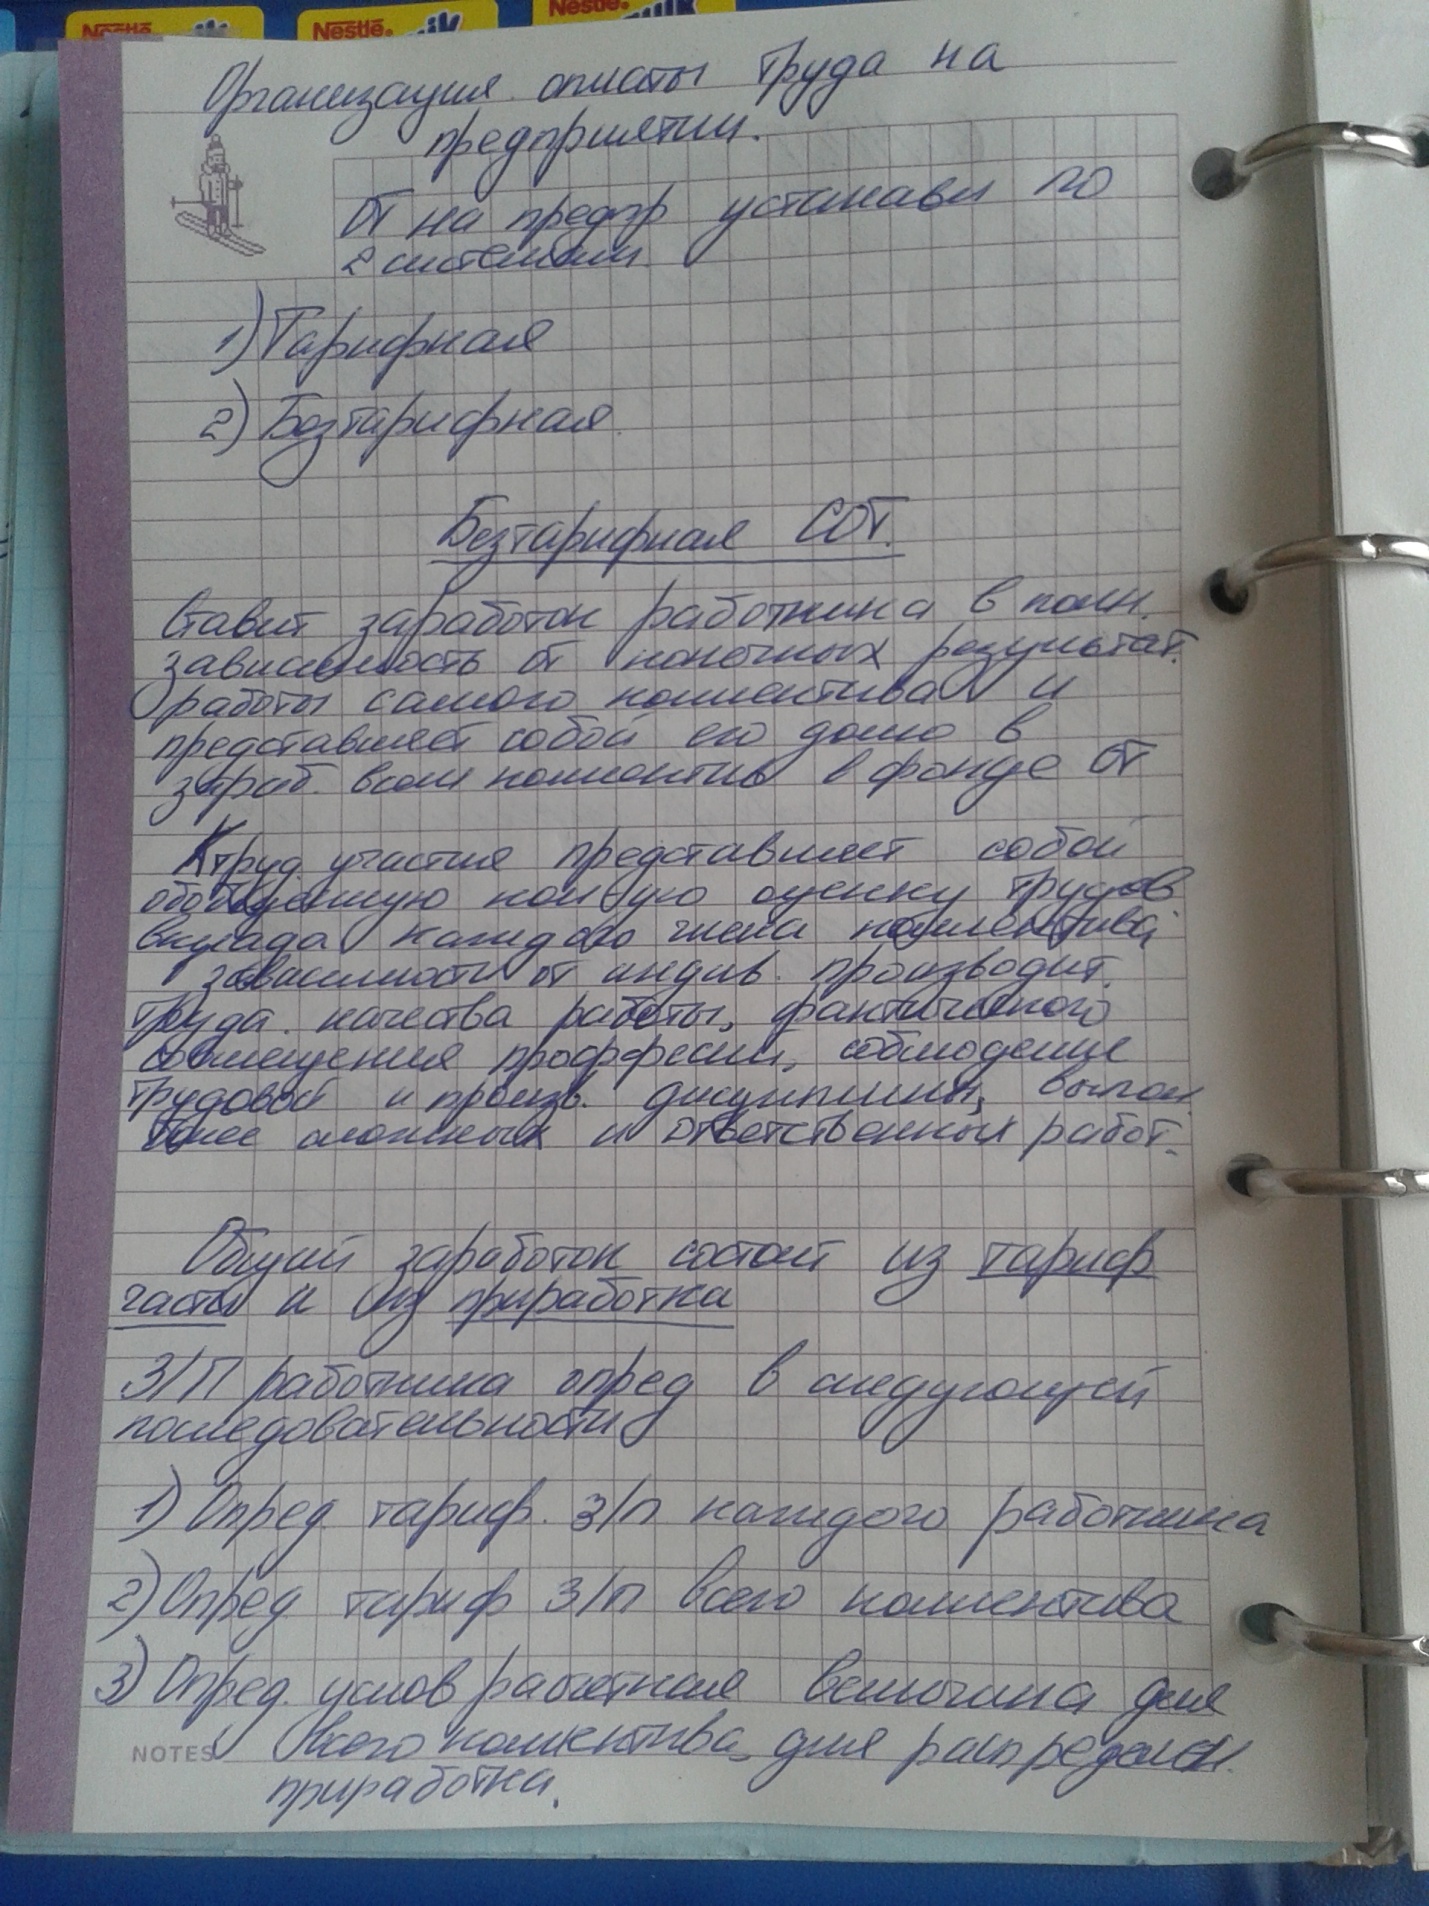 Nestlé
Nestlé
Nestlé
Организация оплаты труда на
предприятии.
ОТ на предпр устанавл по
2 системам
1) Тарифная
2) Безтарифная.
Безтарифная СОТ.
Ставит заработок работника в полн.
зависимость от конечных результат.
работы самого коллектива и
представляет собой его долю в
зараб. всем коллектив в фонде ОТ
Ктруд. участия представляет собой
обобщенную кол-ую оценку трудов
вклада каждого члена коллектива
в зависимости от индив. производит.
труда. качества работы, фактического
совмещения проффесии, соблюдение
трудовой и произв. дисциплины, выпол.
более сложных и ответственных работ.
Общий заработок состоит из тариф
части и из приработка
З/П работника опред в следующей
последовательности
1) Опред. тариф. з/п каждого работника
2) Опред тариф з/п всего коллектива
3) Опред. услов расчетная величина для
всего коллектива, для распределен.
NOTES
приработка.